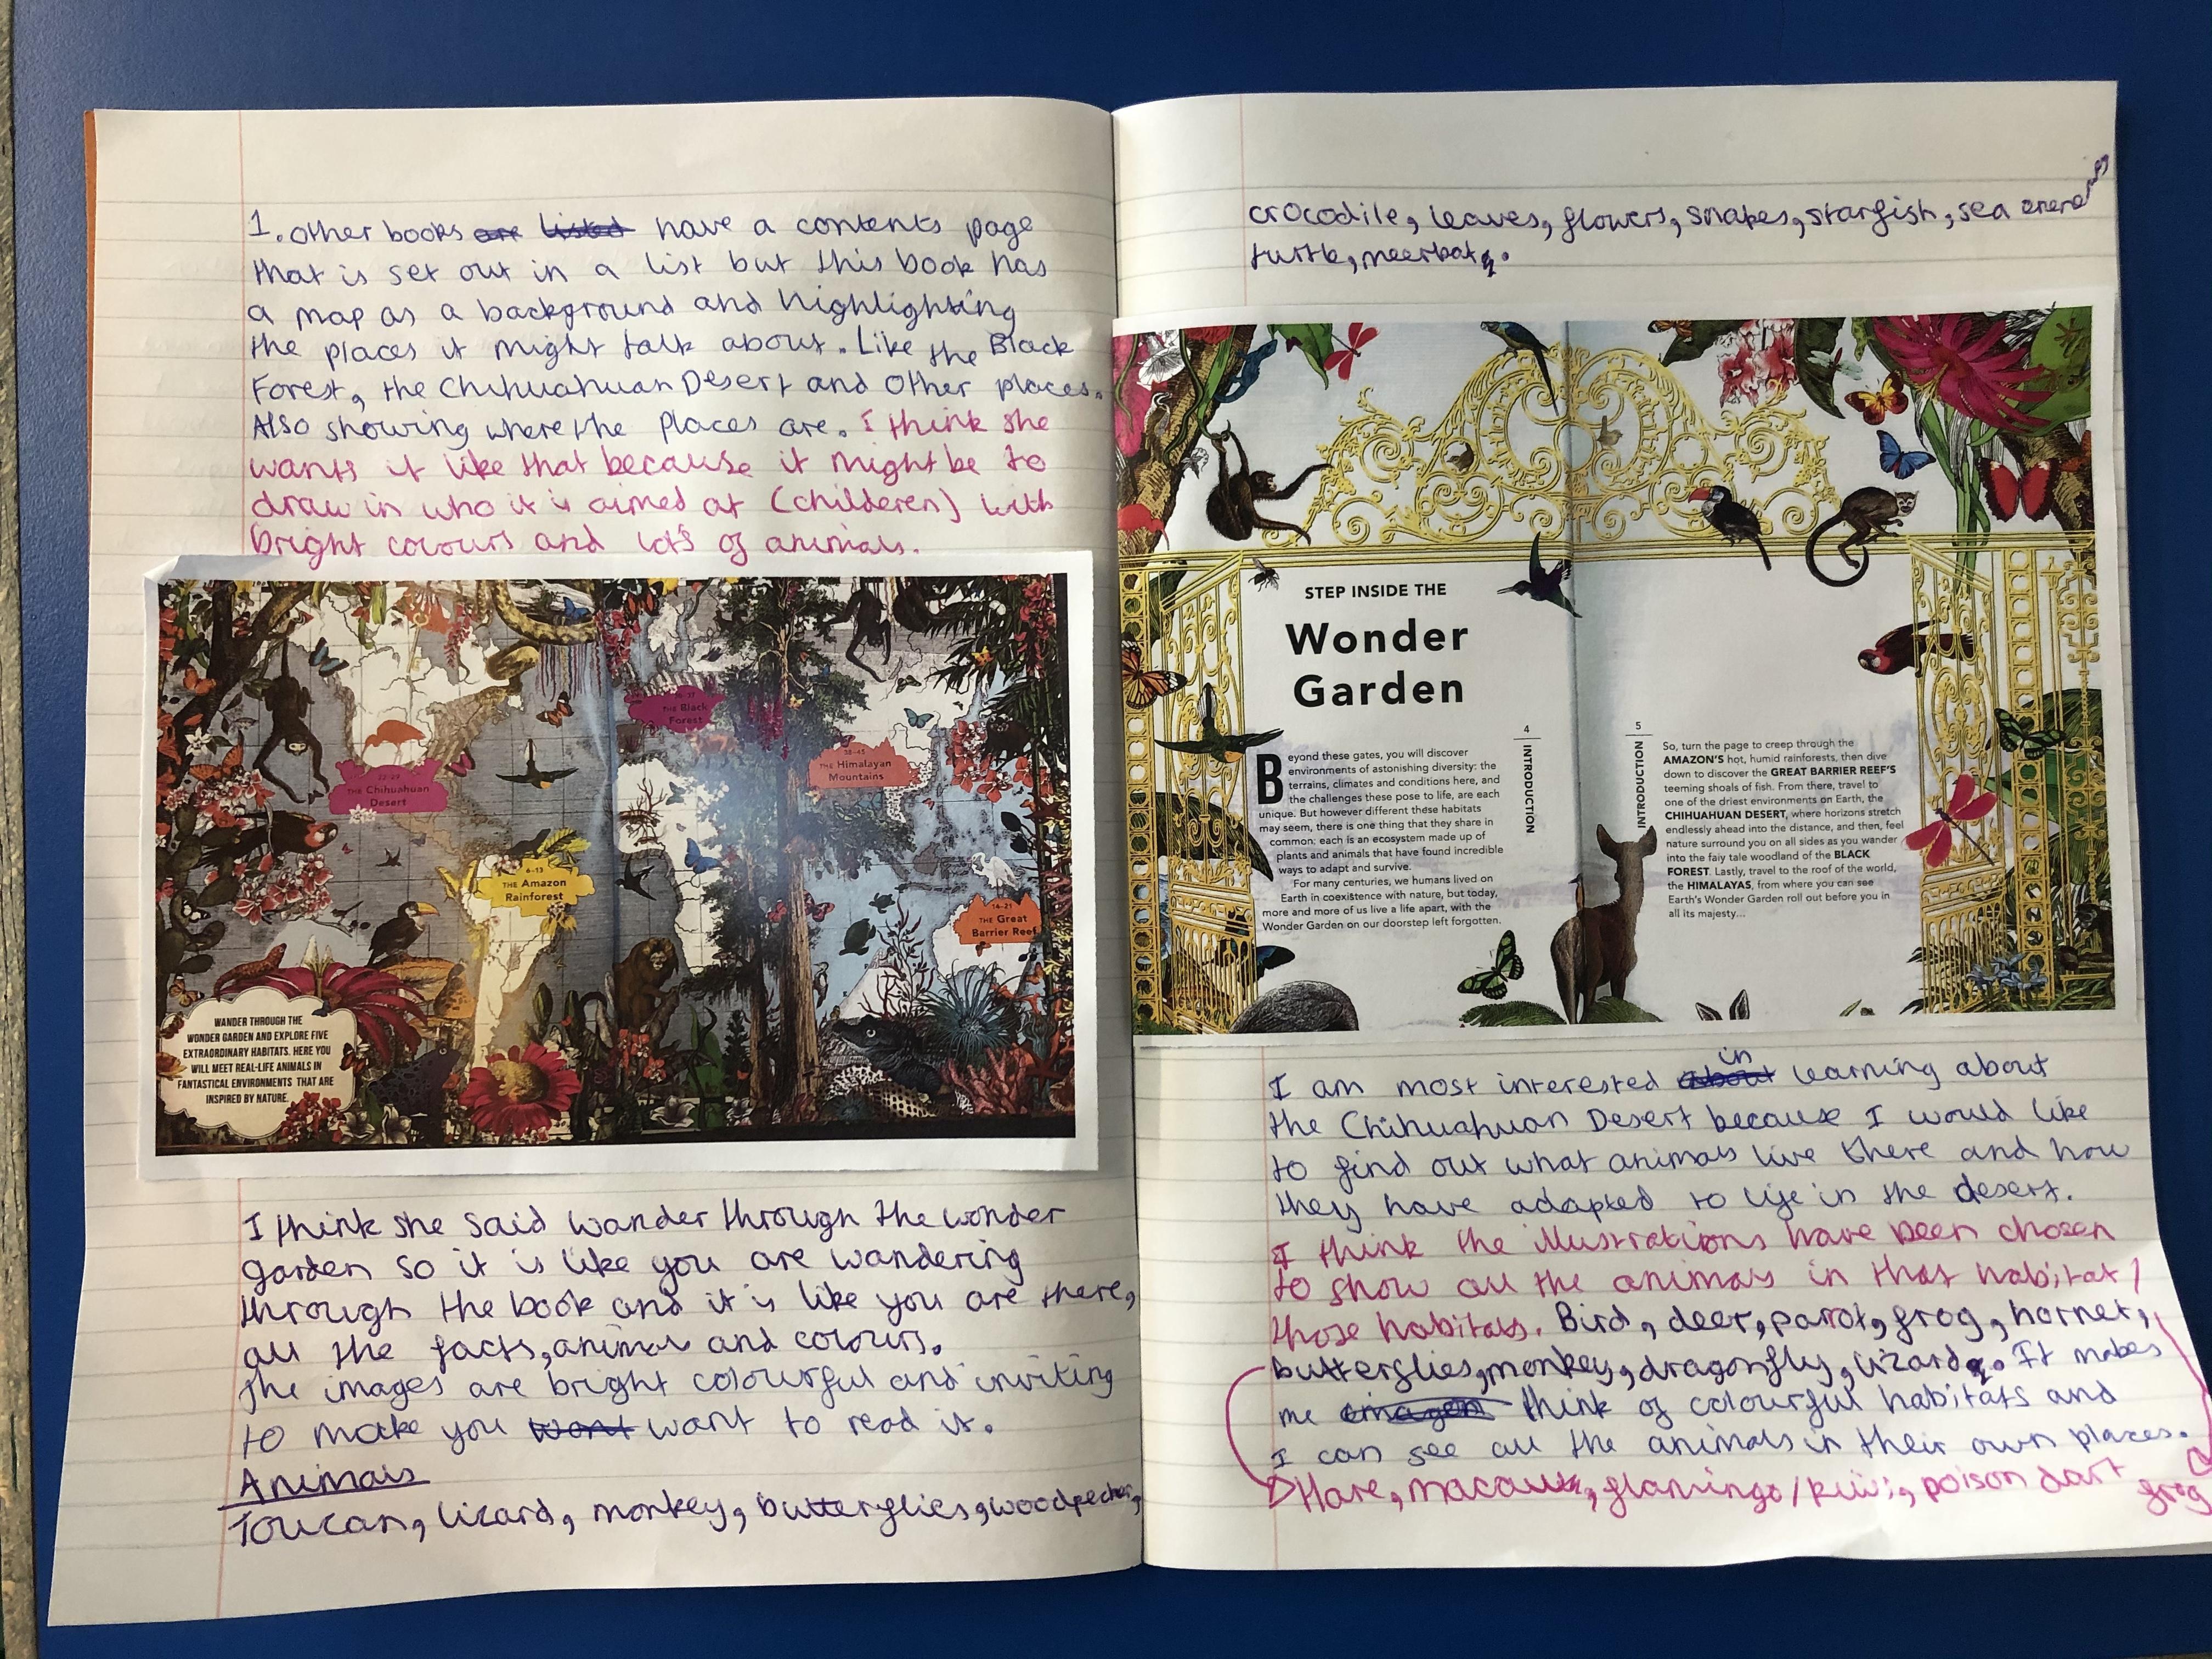 1. other books are listed have a contents page
that is set out in a list but this book has
a map as a background and highlighting
the places it might talk about. Like the Black
Forest, the Chihuahuan Desert and other places.
Also showing where the places are. I think she
wants it like that because it might be to
draw in who it is aimed at (childeren) with
bright colours and lots of animals.
22-29
THE Chihuahuan
Desert
THE Black
Forest
38-45
THE Himalayan
Mountains
6-13
THE Amazon
Rainforest
14-21
THE Great
Barrier Reef
WANDER THROUGH THE
WONDER GARDEN AND EXPLORE FIVE
EXTRAORDINARY HABITATS. HERE YOU
WILL MEET REAL-LIFE ANIMALS IN
FANTASTICAL ENVIRONMENTS THAT ARE
INSPIRED BY NATURE.
I think she said wander through the wonder
garden so it is like you are wandering
through the book and it is like you are there,
all the facts, animals and colours.
The images are bright colourful and inviting
to make you wont want to read it.
Animals
Toucan, lizard, monkey, butterflies, woodpecker,
crocodile, leaves, flowers, snakes, starfish, sea
turtle, meerkat.
STEP INSIDE THE
Wonder
Garden
4
INTRODUCTION
Beyond these gates, you will discover
environments of astonishing diversity: the
terrains, climates and conditions here, and
the challenges these pose to life, are each
unique. But however different these habitats
may seem, there is one thing that they share in
common: each is an ecosystem made up of
plants and animals that have found incredible
ways to adapt and survive.
For many centuries, we humans lived on
Earth in coexistence with nature, but today,
more and more of us live a life apart, with the
Wonder Garden on our doorstep left forgotten.
5
INTRODUCTION
So, turn the page to creep through the
AMAZON'S hot, humid rainforests, then dive
down to discover the GREAT BARRIER REEF'S
teeming shoals of fish. From there, travel to
one of the driest environments on Earth, the
CHIHUAHUAN DESERT, where horizons stretch
endlessly ahead into the distance, and then, feel
nature surround you on all sides as you wander
into the faiy tale woodland of the BLACK
FOREST. Lastly, travel to the roof of the world,
the HIMALAYAS, from where you can see
Earth's Wonder Garden roll out before you in
all its majesty...
I am most interested about in learning about
the Chihuahuan Desert because I would like
to find out what animals live there and how
they have adapted to life in the desert.
I think the illustrations have been chosen
to show all the animals in that habitat/
those habitats. Bird, deer, parrot, frog, hornet,
butterflies, monkey, dragonfly, lizard. It makes
me think of colourful habitats and
I can see all the animals in their own places.
Hare, macaw, flamingo/kiwi, poison dart frog